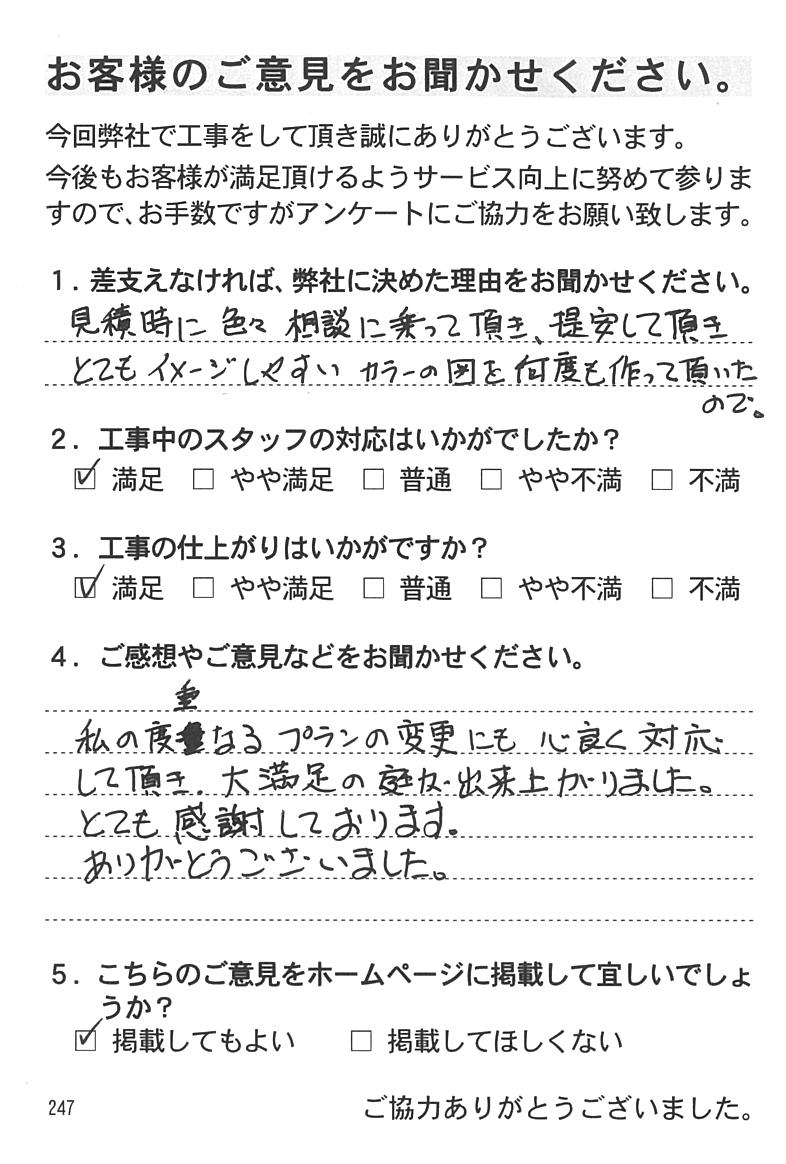 お客様のご意見をお聞かせください。
今回弊社で工事をして頂き誠にありがとうございます。
今後もお客様が満足頂けるようサービス向上に努めて参りま
すので、お手数ですがアンケートにご協力をお願い致します。
1．差支えなければ、弊社に決めた理由をお聞かせください。
見積時に 色々 相談に乗って頂き、提案して頂き
とてもイメージしやすい カラーの図を何度も作って頂いた
ので。
2．工事中のスタッフの対応はいかがでしたか？
☑ 満足 □ やや満足 □ 普通 □ やや不満 □ 不満
3．工事の仕上がりはいかがですか？
☑ 満足 □ やや満足 □ 普通 □ やや不満 □ 不満
4．ご感想やご意見などをお聞かせください。
重
私の度重なる プランの変更にも 心良く対応
して頂き、大満足の庭が出来上がりました。
とても感謝しております。
ありがとうございました。
5．こちらのご意見をホームページに掲載して宜しいでしょ
うか？
☑ 掲載してもよい □ 掲載してほしくない
247
ご協力ありがとうございました。